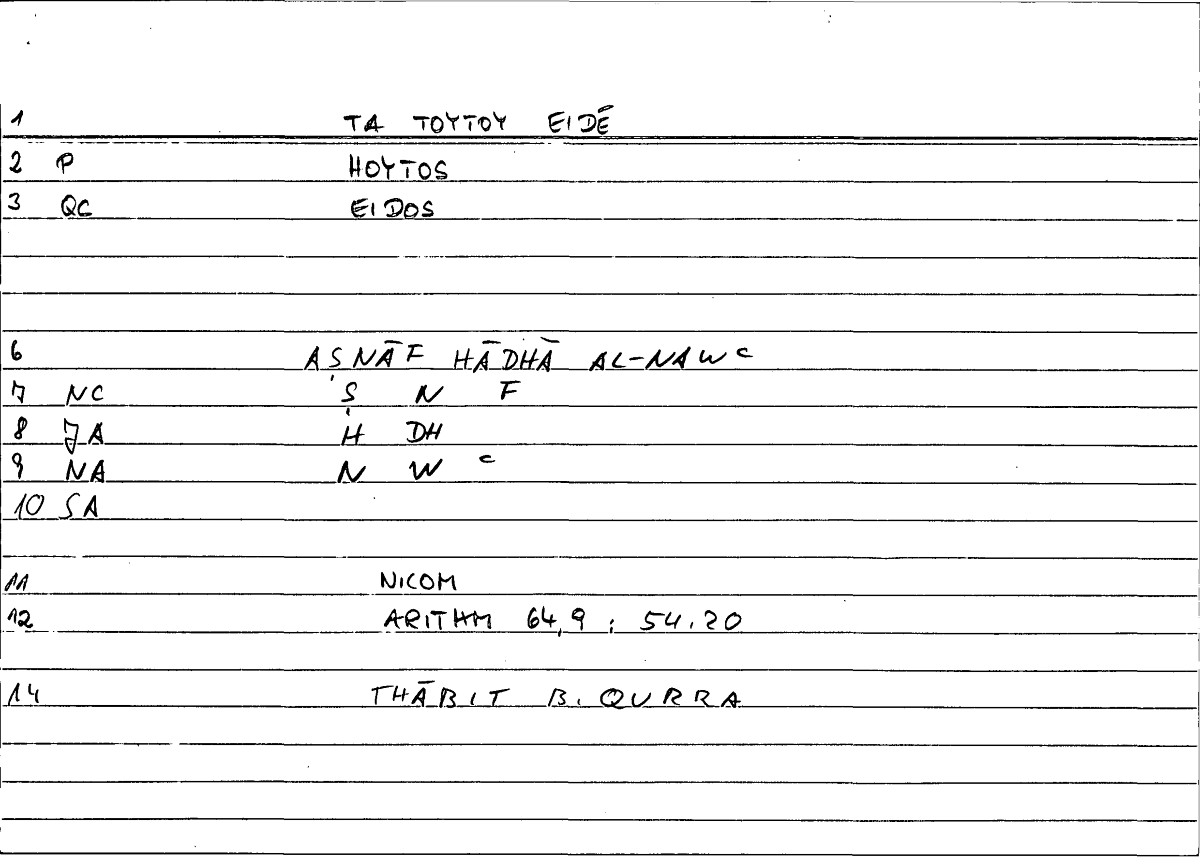 1 TA TOYTOY EIDĒ
2 P HOYTOS
3 QC EIDOS
6 AṢNĀF HĀDHĀ AL-NAWᶜ
7 NC Ṣ N F
8 JA H DH
9 NA N W ᶜ
10 SA
11 NICOM
12 ARITHM 64,9 : 54.20
14 THĀBIT B. QURRA